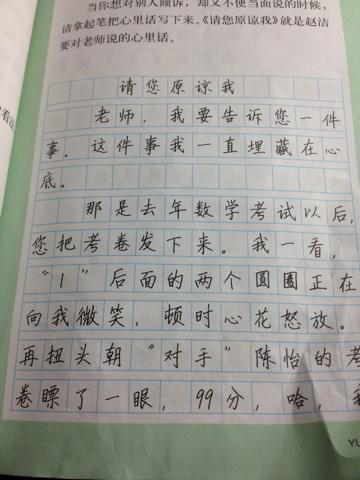 当你想对别人倾诉，却又不便当面说的时候，
请拿起笔把心里话写下来。《请您原谅我》就是赵洁
要对老师说的心里话。
请您原谅我
老师，我要告诉您一件
事。这件事我一直埋藏在心
底。
那是去年数学考试以后，
您把考卷发下来。我一看，
“1”后面的两个圆圈正在
向我微笑，顿时心花怒放。
再扭头朝“对手”陈怡的考
卷瞟了一眼，99分，哈，我